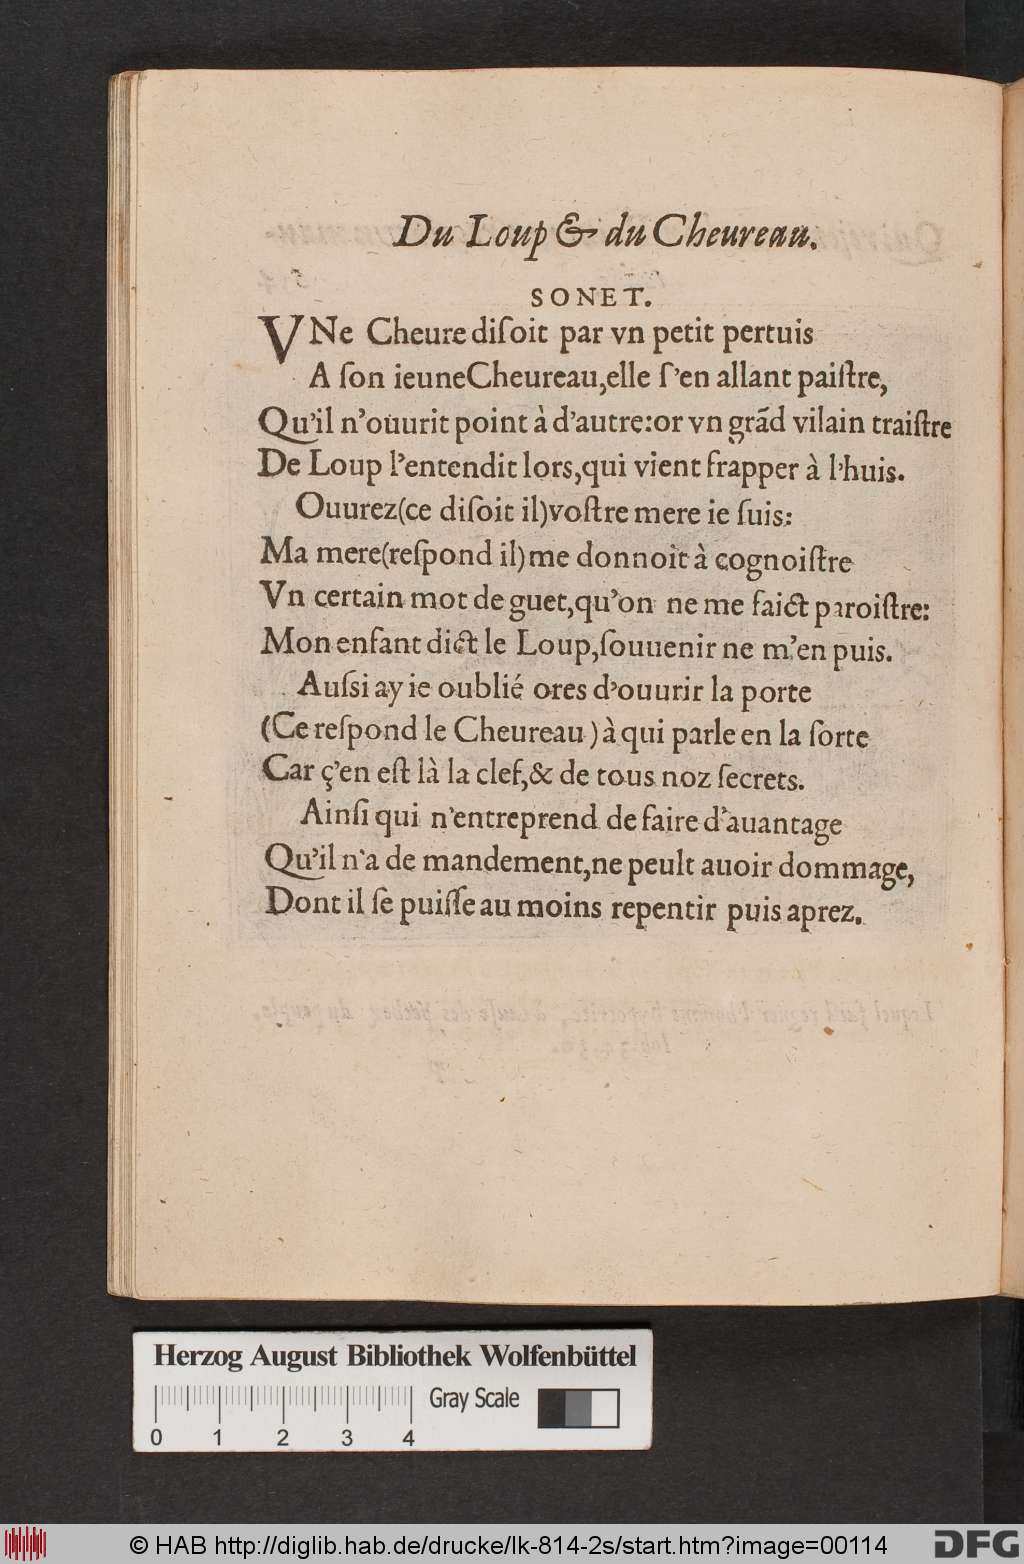 Du Loup & du Cheureau.
SONET.
VNe Cheure diſoit par vn petit pertuis
A ſon ieuneCheureau,elle ſ'en allant paiſtre,
Qu'il n'ouurit point à d'autre:or vn grãd vilain traiſtre
De Loup l'entendit lors,qui vient frapper à l'huis.
Ouurez(ce diſoit il)voſtre mere ie ſuis:
Ma mere(reſpond il)me donnoit à cognoiſtre
Vn certain mot de guet,qu'on ne me faict paroiſtre:
Mon enfant dict le Loup,ſouuenir ne m'en puis.
Auſsi ay ie oublié ores d'ouurir la porte
(Ce reſpond le Cheureau)à qui parle en la ſorte
Car ç'en eſt là la clef,& de tous noz ſecrets.
Ainſi qui n'entreprend de faire d'auantage
Qu'il n'a de mandement,ne peult auoir dommage,
Dont il ſe puiſſe au moins repentir puis aprez.
Herzog August Bibliothek Wolfenbüttel
Gray Scale
0 1 2 3 4
© HAB http://diglib.hab.de/drucke/lk-814-2s/start.htm?image=00114
DFG